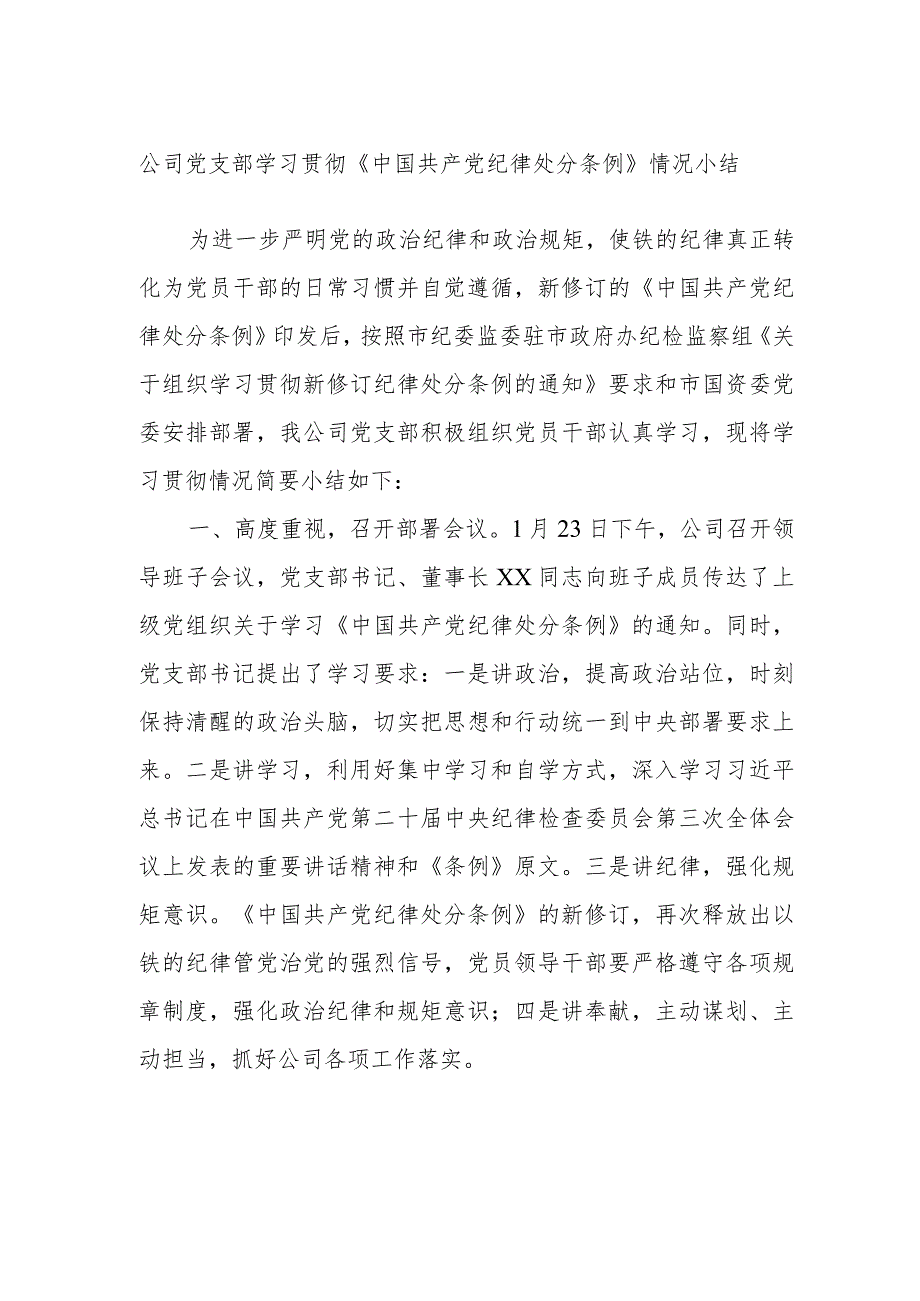 公司党支部学习贯彻《中国共产党纪律处分条例》情况小结
为进一步严明党的政治纪律和政治规矩，使铁的纪律真正转
化为党员干部的日常习惯并自觉遵循，新修订的《中国共产党纪
律处分条例》印发后，按照市纪委监委驻市政府办纪检监察组《关
于组织学习贯彻新修订纪律处分条例的通知》要求和市国资委党
委安排部署，我公司党支部积极组织党员干部认真学习，现将学
习贯彻情况简要小结如下：
一、高度重视，召开部署会议。1 月 23 日下午，公司召开领
导班子会议，党支部书记、董事长 XX 同志向班子成员传达了上
级党组织关于学习《中国共产党纪律处分条例》的通知。同时，
党支部书记提出了学习要求：一是讲政治，提高政治站位，时刻
保持清醒的政治头脑，切实把思想和行动统一到中央部署要求上
来。二是讲学习，利用好集中学习和自学方式，深入学习习近平
总书记在中国共产党第二十届中央纪律检查委员会第三次全体会
议上发表的重要讲话精神和《条例》原文。三是讲纪律，强化规
矩意识。《中国共产党纪律处分条例》的新修订，再次释放出以
铁的纪律管党治党的强烈信号，党员领导干部要严格遵守各项规
章制度，强化政治纪律和规矩意识；四是讲奉献，主动谋划、主
动担当，抓好公司各项工作落实。